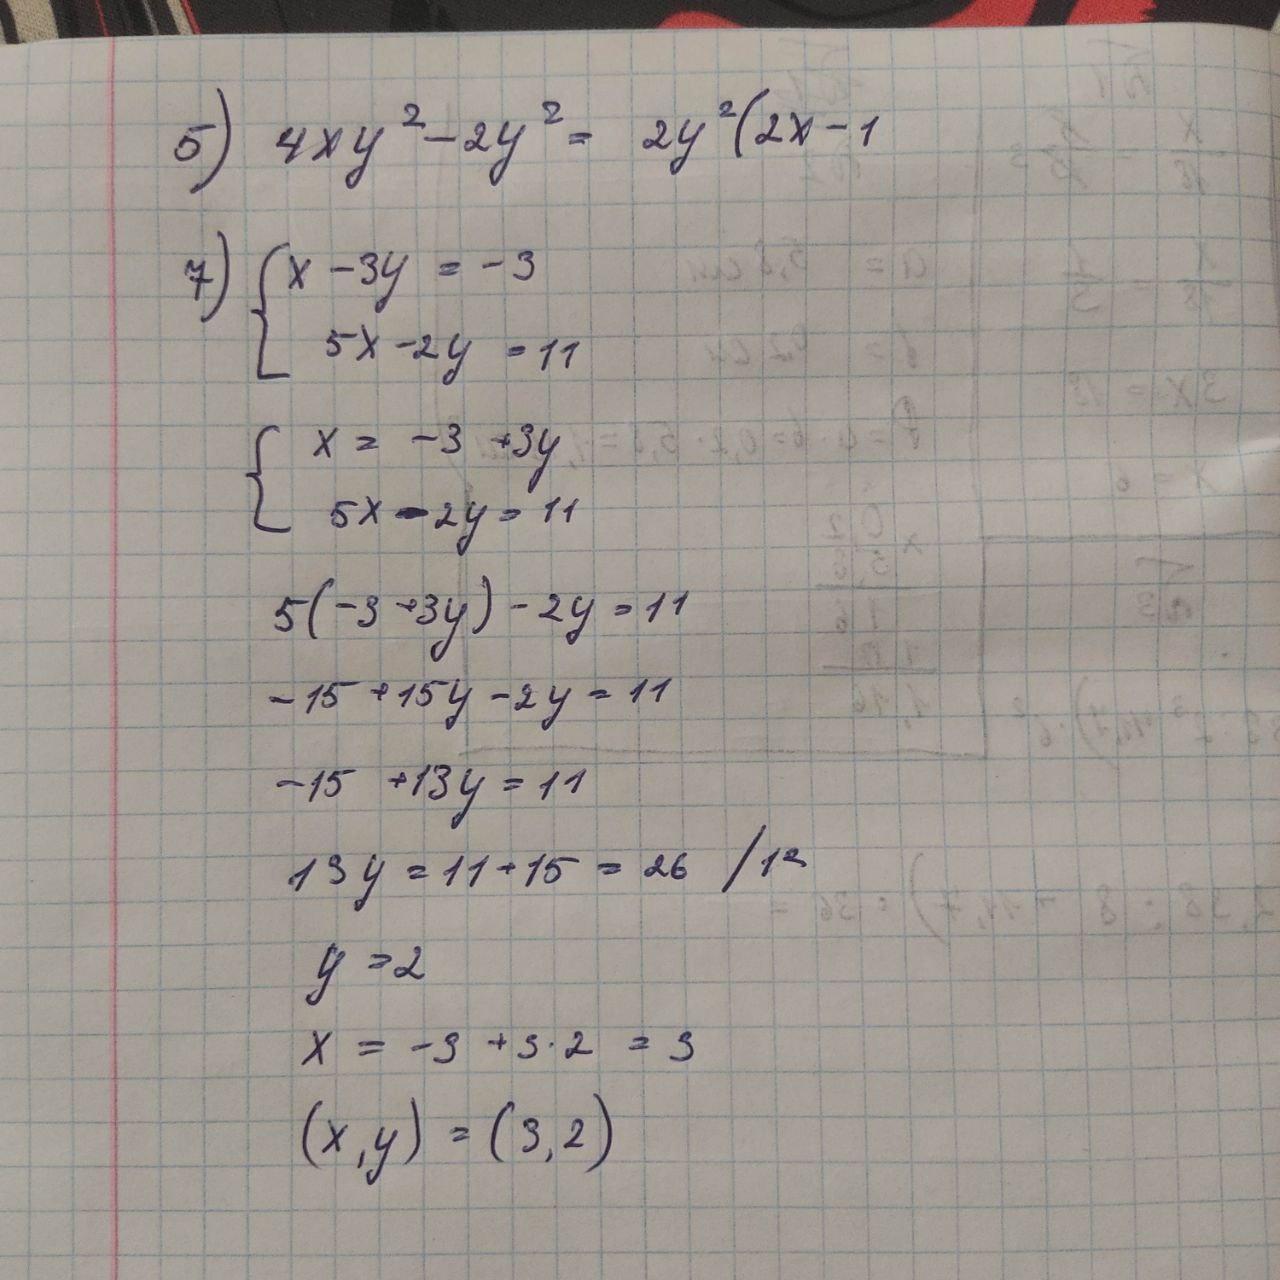 5) 4xy² - 2y² = 2y²(2x - 1
7) { x - 3y = -3
5x - 2y = 11
{ x = -3 + 3y
5x - 2y = 11
5(-3 + 3y) - 2y = 11
-15 + 15y - 2y = 11
-15 + 13y = 11
13y = 11 + 15 = 26 /13
y = 2
x = -3 + 3·2 = 3
(x, y) = (3, 2)